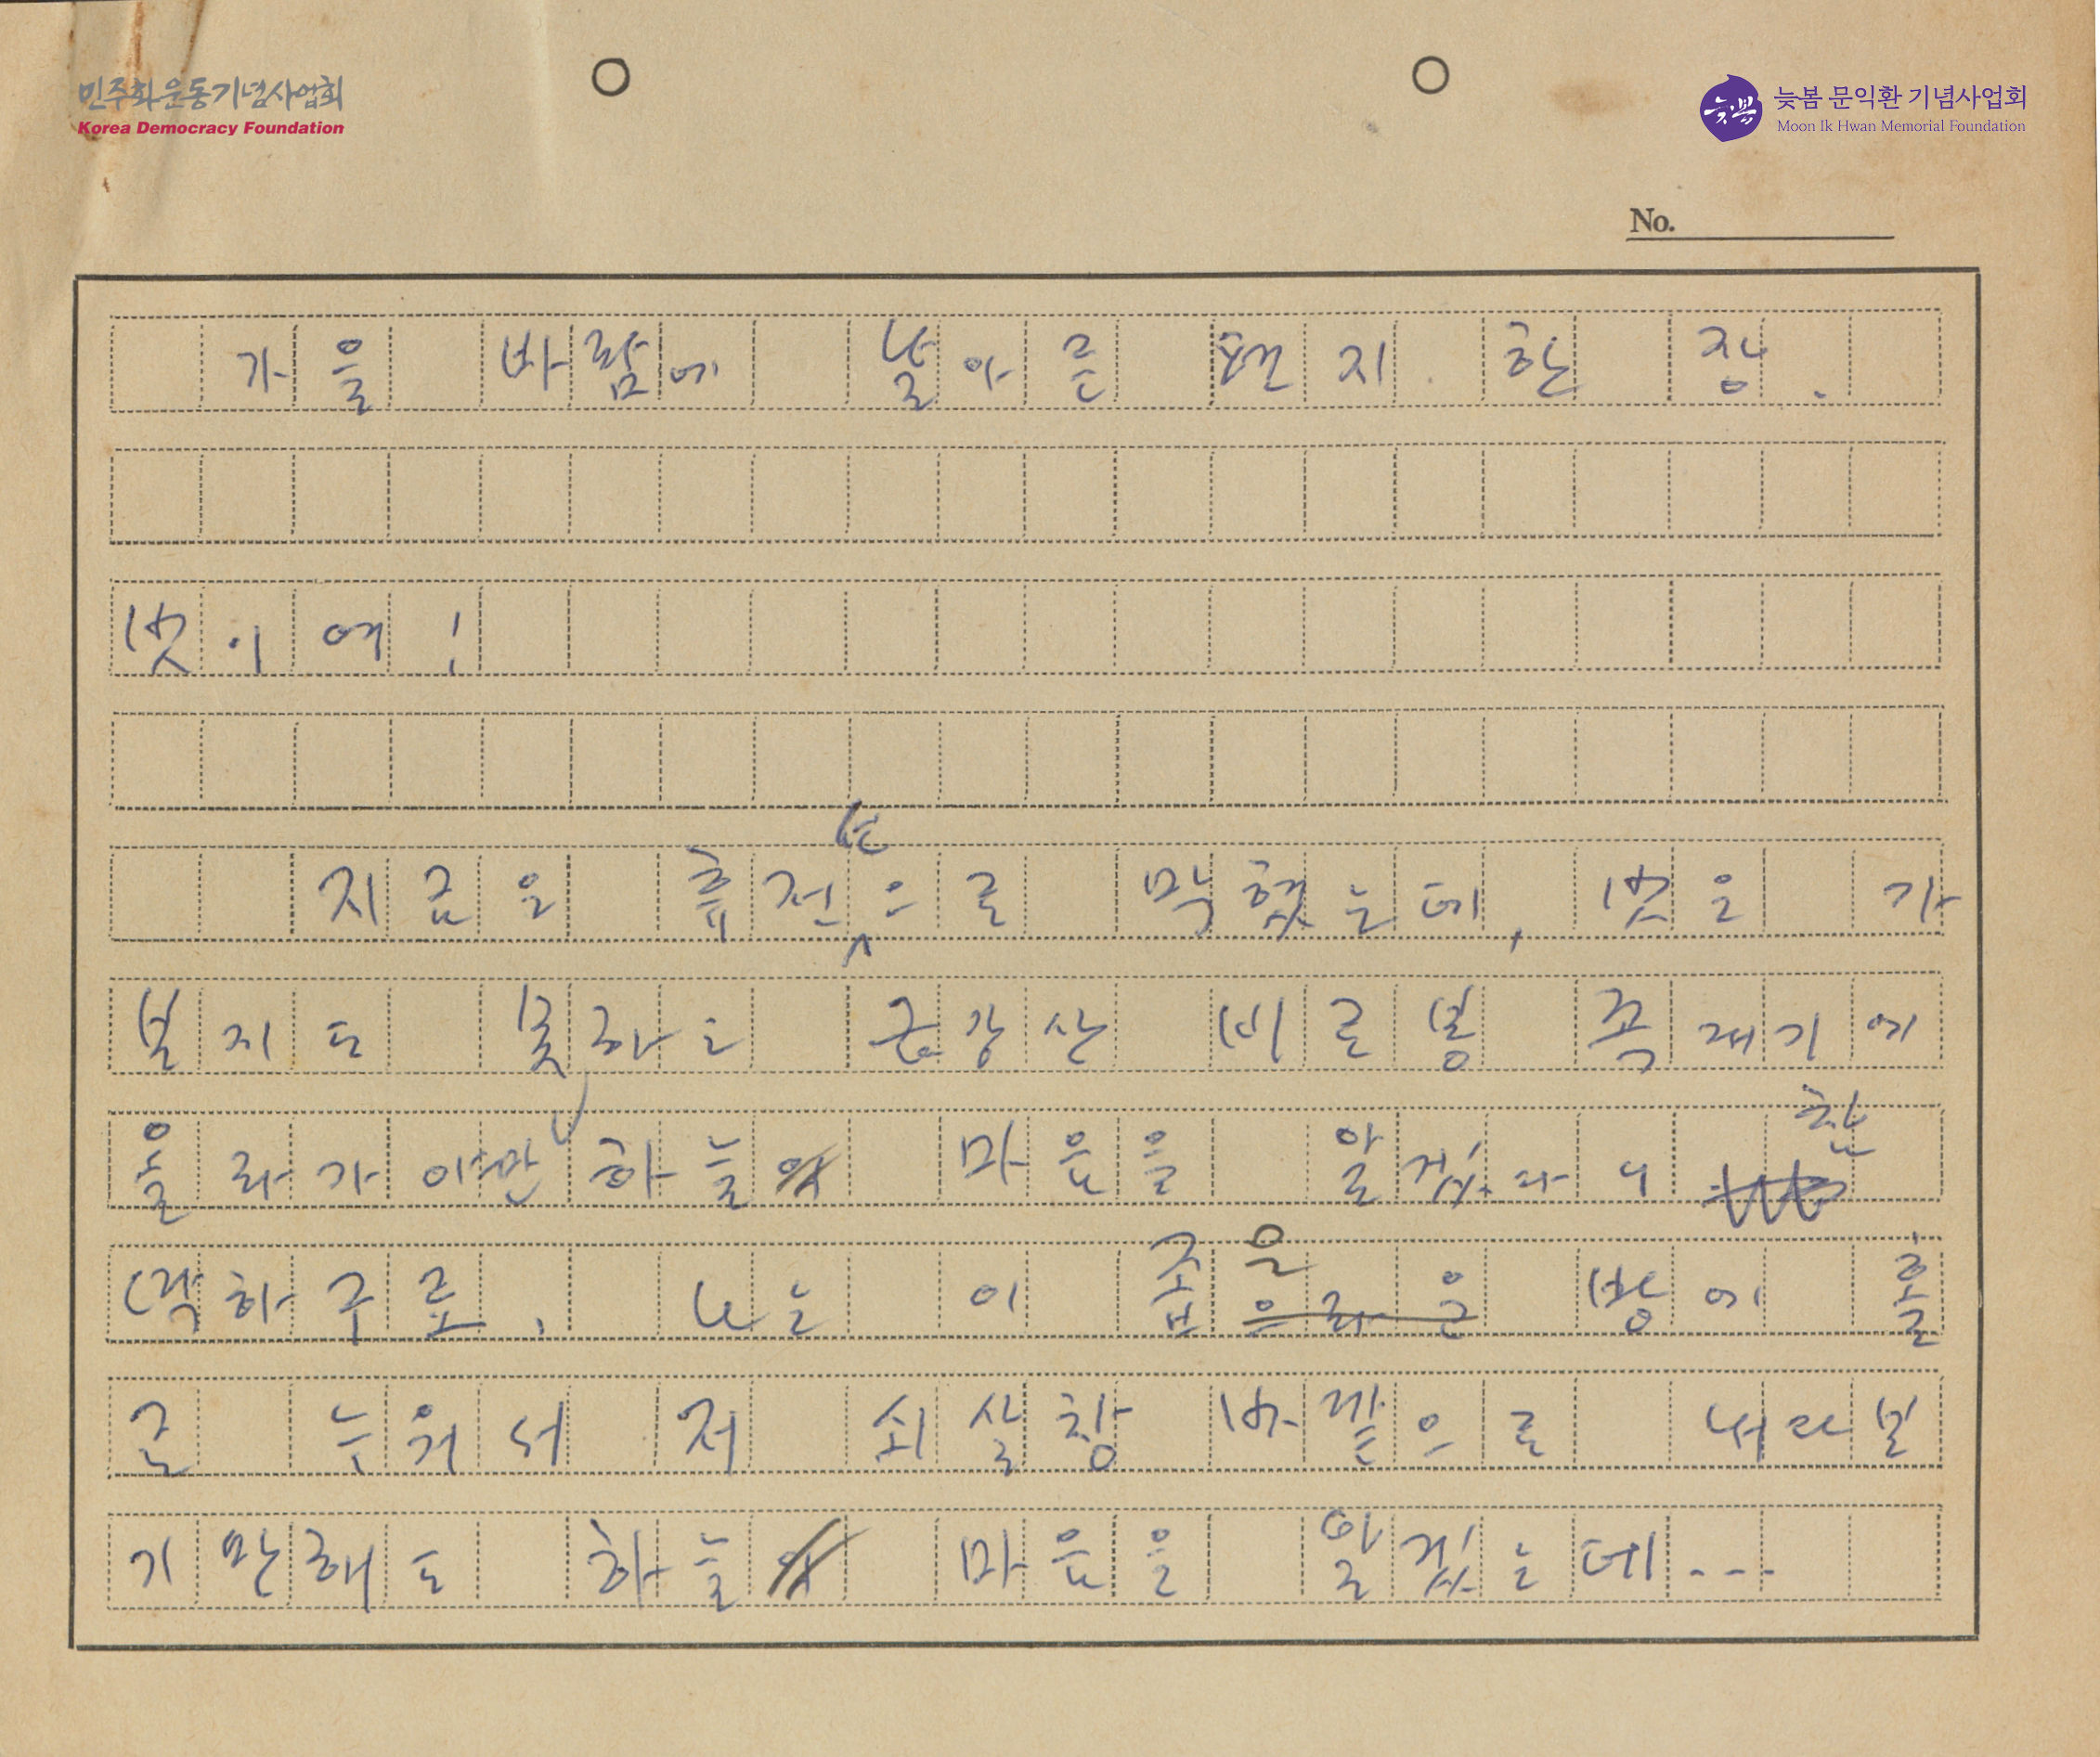 민주화운동기념사업회
Korea Democracy Foundation
늦봄
늦봄 문익환 기념사업회
Moon Ik Hwan Memorial Foundation
No.
가을 바람에 날아른 편지 한 장.
벗이여!
지금은 휴전선으로 막혔는데, 벗은 가
볼지도 못하는 금강산 비로봉 꼭재기에
올라가야만 하늘의 마음을 알겠다니 한
댁하구료. 나는 이 좁은 방에 홀
로 누워서 저 쇠살창 바깥으로 내다보
기만해도 하늘의 마음을 알겠는데...